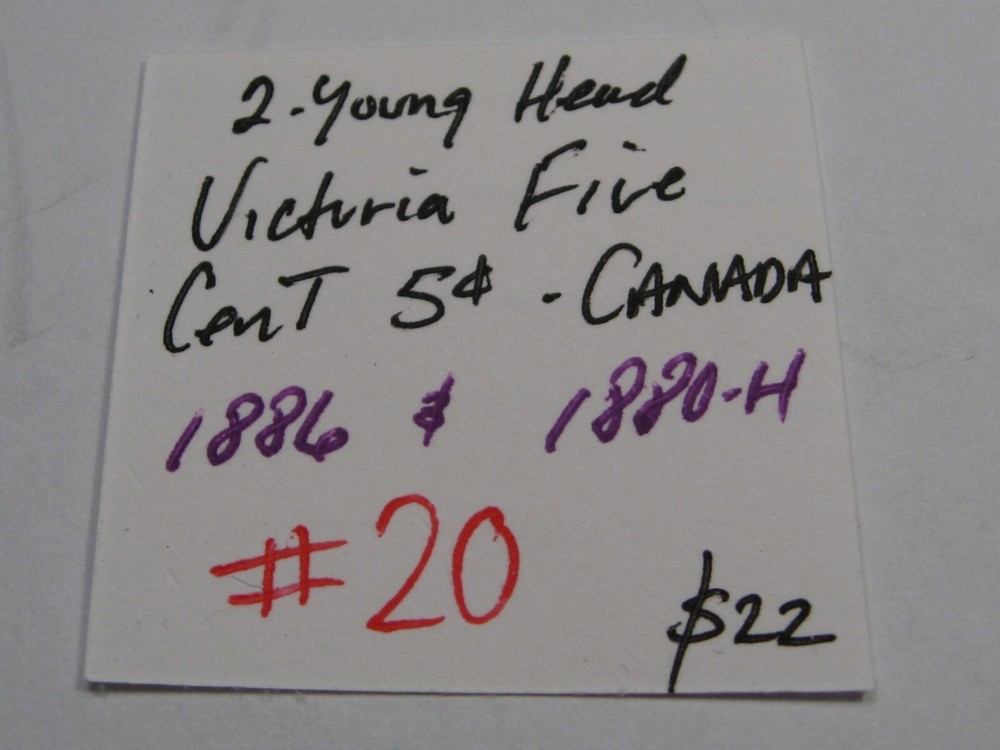 2-Young Head
Victoria Five
Cent 5¢ - CANADA
1886 & 1880-H
#20
$22